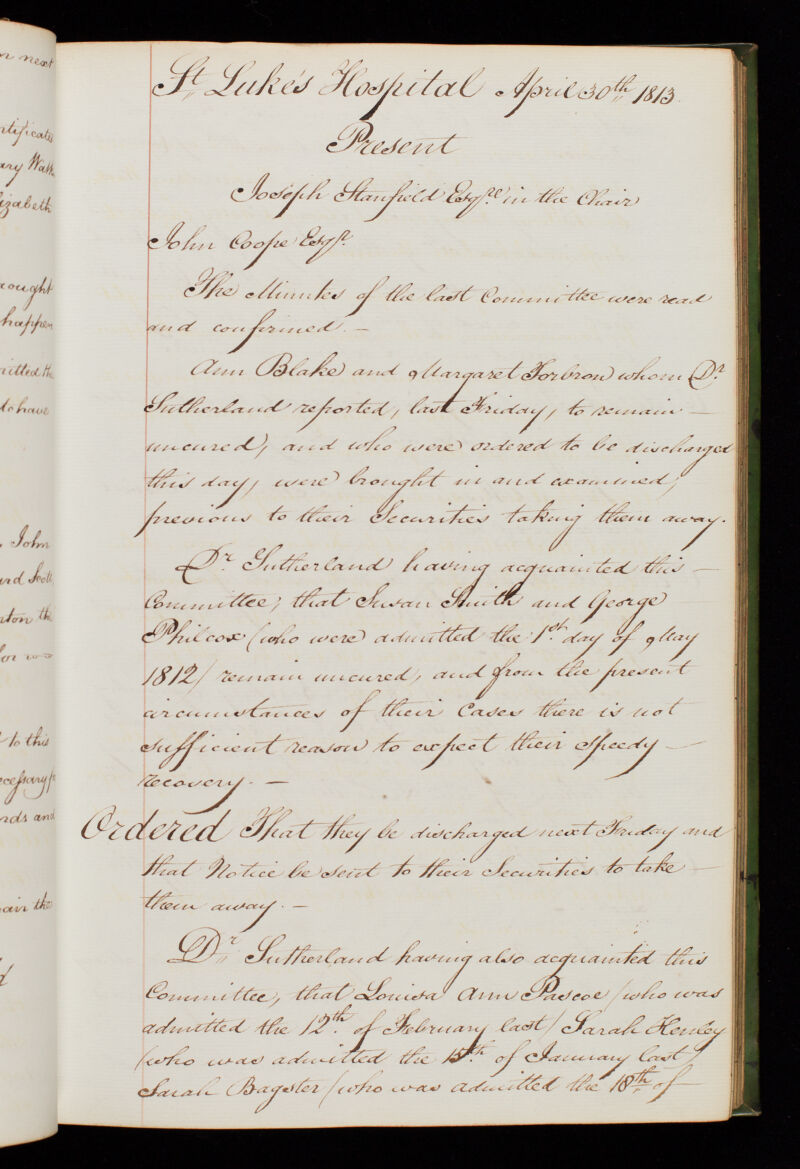 n next
rtificates
ary Wat
lizabeth
rought
happen
mitted the
to have
John
urd Scott
nton the
for
t to this
ecessary
nds and
air the
St. Luke's Hospital April 30th 1813.
Present
Joseph Stanfield Esqre. in the Chair
John Coope Esqr.
The Minutes of the last Committee were read
and confirmed. —
Ann Blake and Margaret Forbrow whom Dr.
Sutherland reported, last Friday, to remain —
uncured, and who were ordered to be discharged
this day, were brought in and examined,
previous to their Securities taking them away.
Dr. Sutherland having acquainted this —
Committee, that Susan Smith and George
Philcox (who were admitted the 1st. day of May
1812) remain uncured, and from the present
circumstances of their Cases there is not
sufficient reason to expect their speedy —
recovery. —
Ordered That they be discharged next Friday and
that Notice be sent to their Securities to take —
them away. —
Dr. Sutherland having also acquainted this
Committee, that Louisa Ann Pascoe (who was
admitted the 12th. of February last) Sarah Henley
(who was admitted the 15th. of January last)
Sarah Bagster (who was admitted the 18th. of